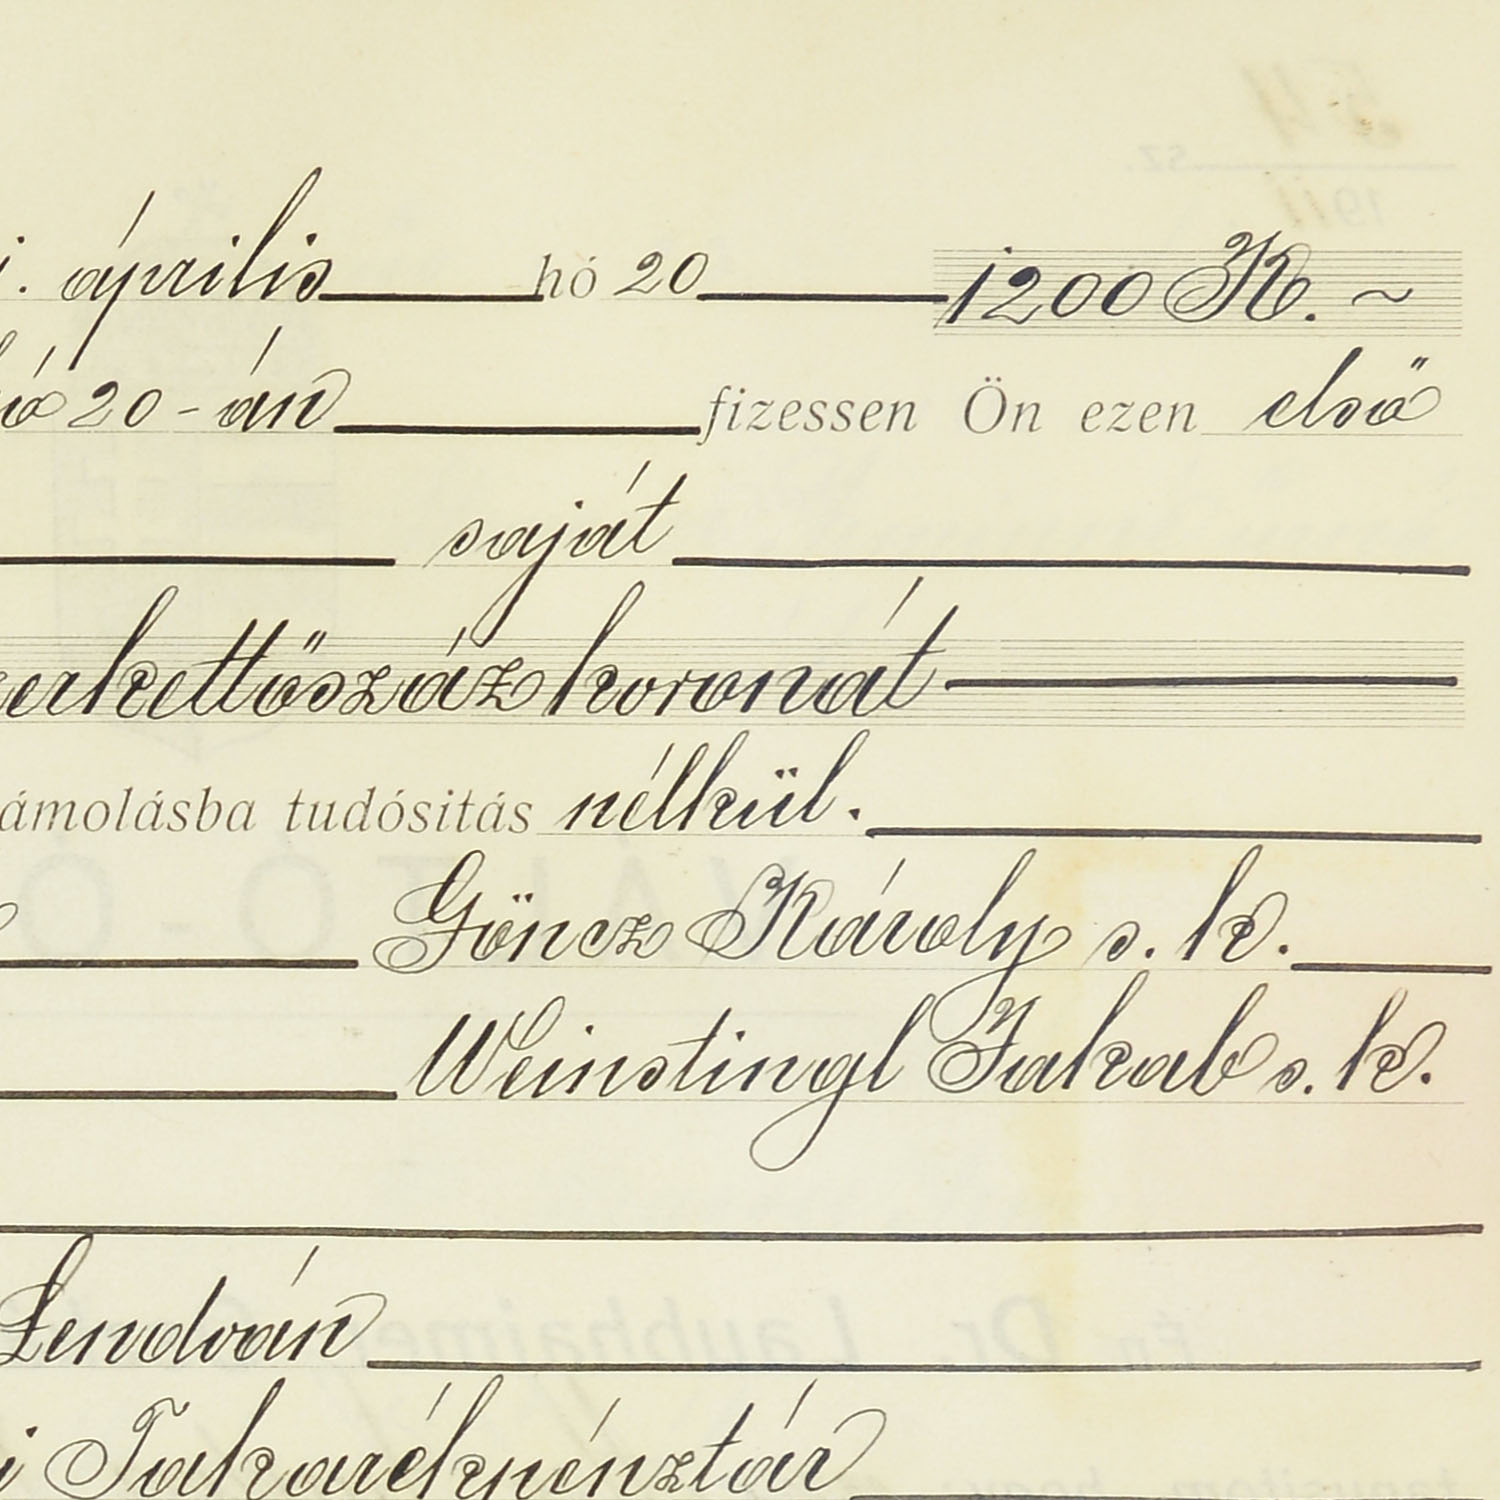 április hó 20 1200 K. ~
20-án fizessen Ön ezen első
saját
erkettőszáz koronát
ámolásba tudósitás nélkül.
Göncz Károly s. k.
Weinstingl Jakab s. k.
Lendván
i Takarékpénztár